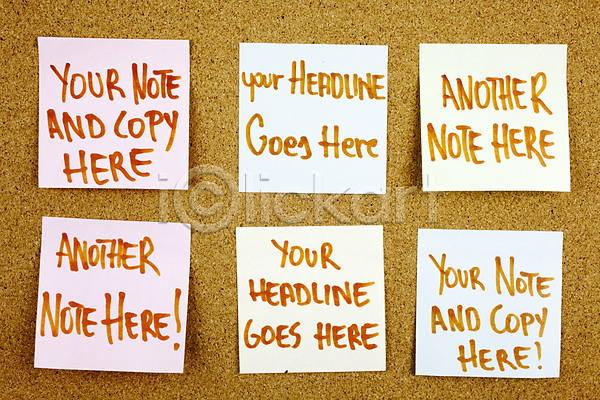 YOUR NOTE
AND COPY
HERE
your HEADLINE
Goes Here
ANOTHER
NOTE HERE
ANOTHER
NOTE HERE!
YOUR
HEADLINE
GOES HERE
YOUR NOTE
AND COPY
HERE!
iclickart